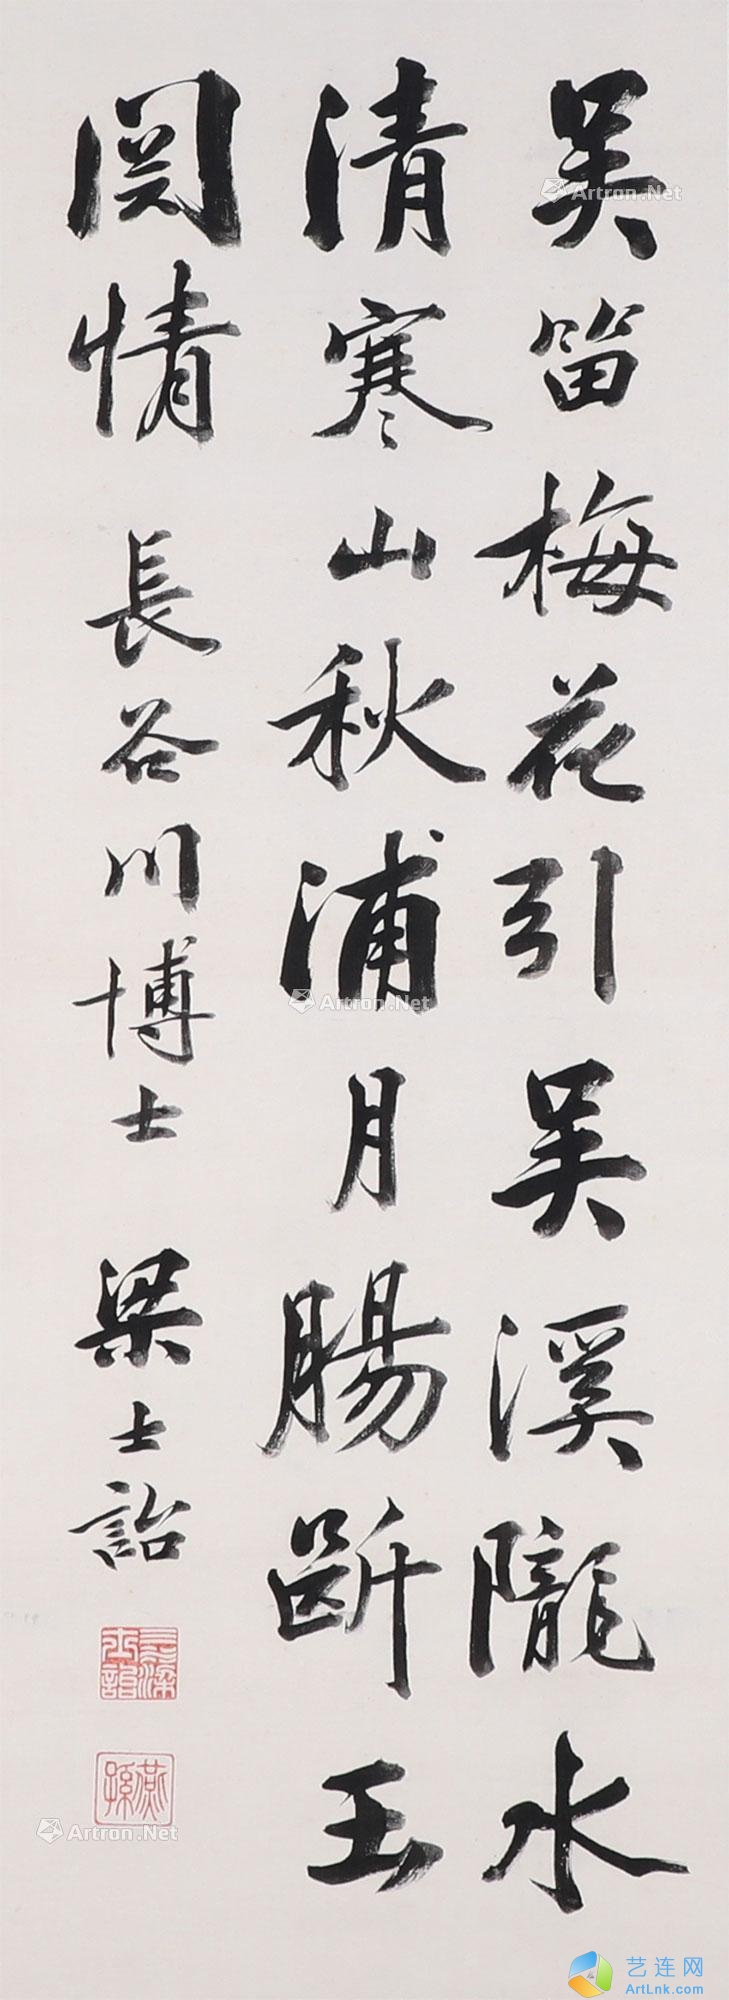 吴笛梅花引吴溪隴水
清寒山秋浦月腸斷玉
関情
長谷川博士
梁士詒
三水梁士詒
燕孫
Artron.Net
Artron.Net
Artron.Net
艺连网
ArtLnk.com